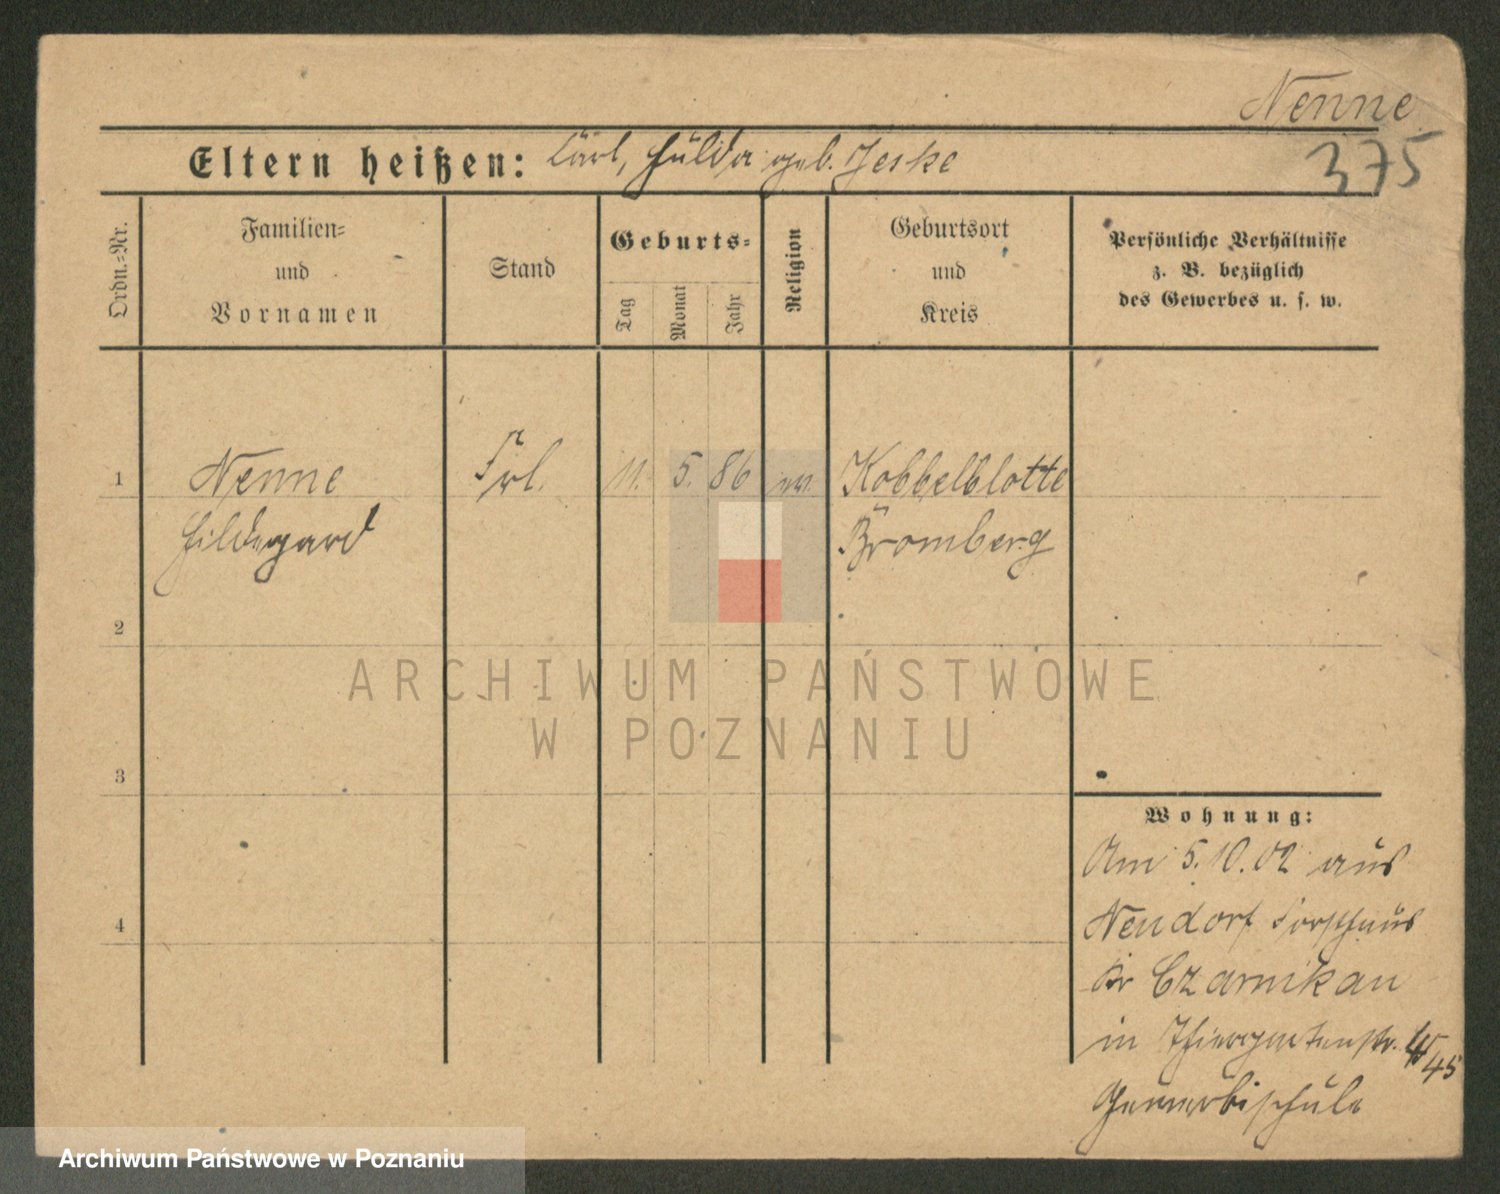 Nenne
375
Eltern heißen: Carl, Hulda geb. Jeske
Ordn.-Nr.
Familien-
und
Vornamen
Stand
Geburts-
Tag
Monat
Jahr
Religion
Geburtsort
und
Kreis
Persönliche Verhältnisse
z. B. bezüglich
des Gewerbes u. s. w.
1 Nenne Frl. 11. 5. 86 ev. Kobbelblotte
Hildegard Bromberg
2
3
4
Wohnung:
Am 5.10.02 aus
Neudorf Forsthaus
Kr Czarnikau
in Thiergartenstr.
45
Gewerbeschule
ARCHIWUM PAŃSTWOWE
W POZNANIU
Archiwum Państwowe w Poznaniu